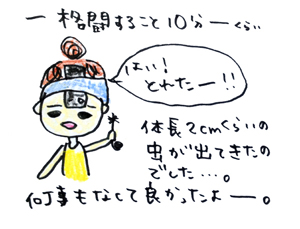 一格闘すること10分ーくらい
はい!
とれたー!!
体長2cmくらいの
虫が出てきたの
でした…。
何事もなくて良かったよー。